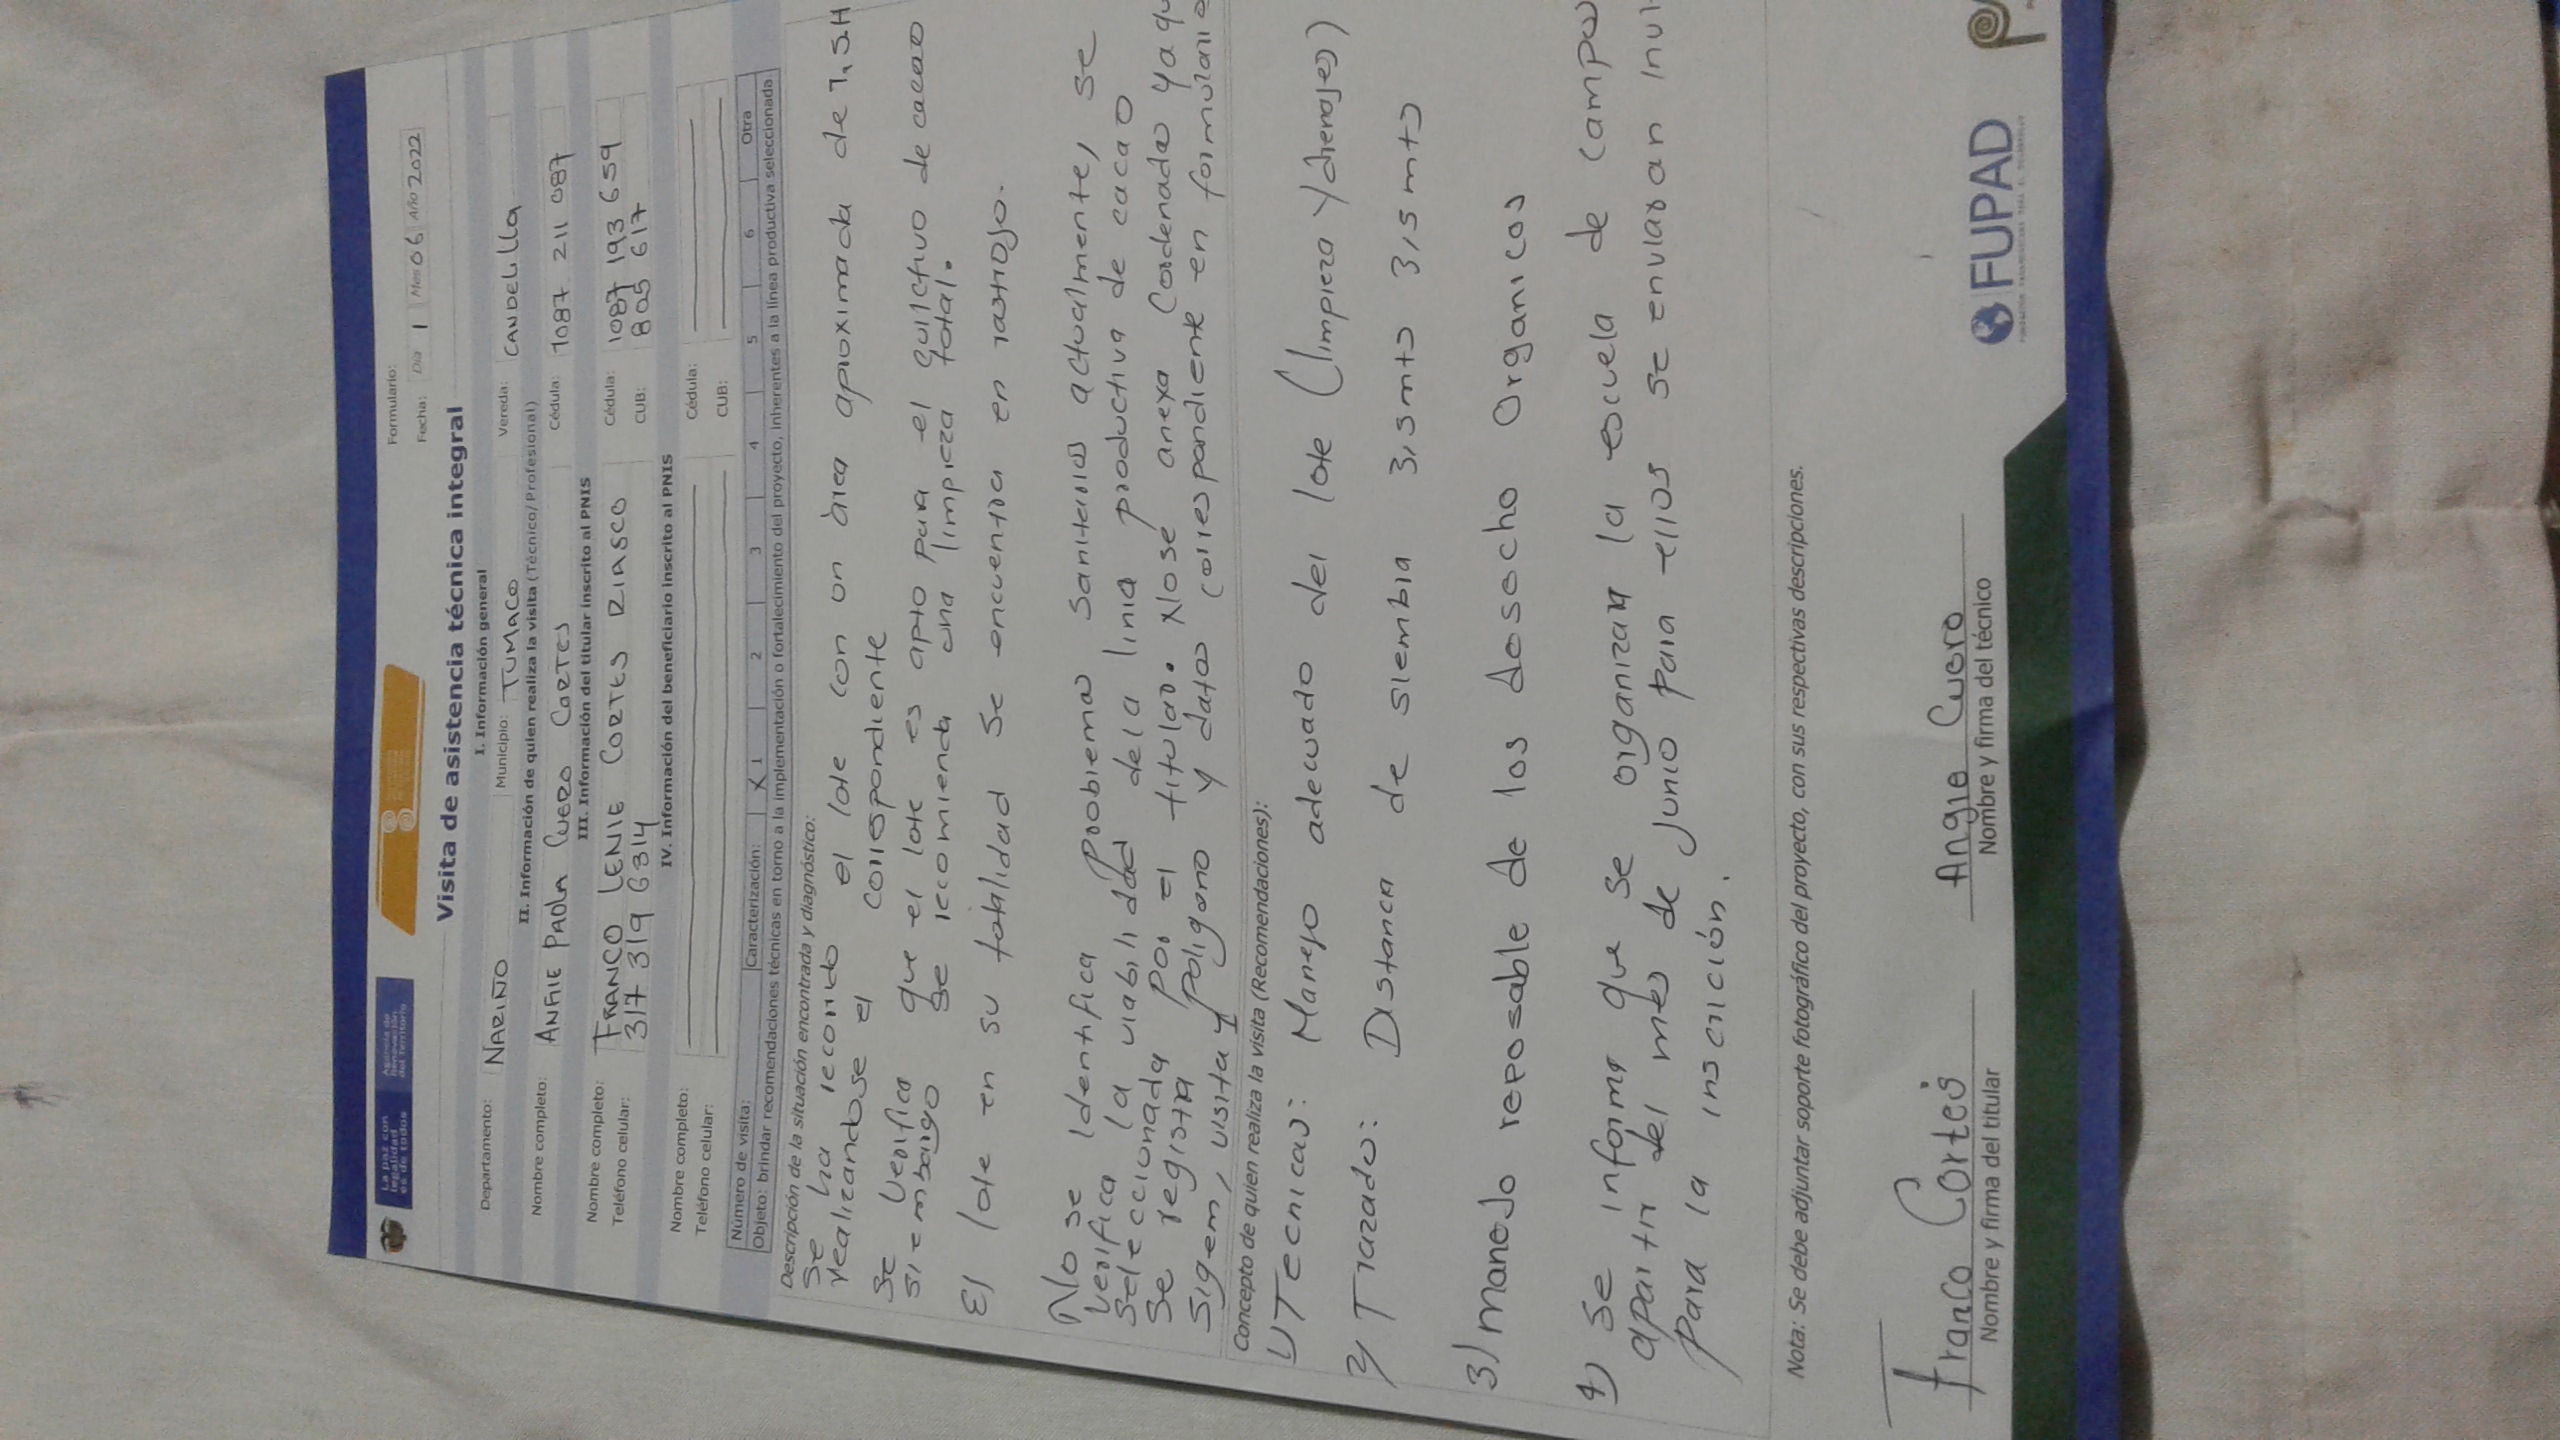 La paz con
legalidad
es de todos
Agencia de
Renovación
del Territorio
Formulario:
Fecha: Día 1 Mes 06 Año 2022
Visita de asistencia técnica integral
I. Información general
Departamento: NARIÑO Municipio: TUMACO Vereda: CANDELILLA
II. Información de quien realiza la visita (Técnico/Profesional)
Nombre completo: ANGIE PAOLA CUERO CORTES Cédula: 1087 211 087
III. Información del titular inscrito al PNIS
Nombre completo: FRANCO LENIE CORTES RIASCO Cédula: 1087 193 659
Teléfono celular: 317 319 6314 CUB: 805 617
IV. Información del beneficiario inscrito al PNIS
Nombre completo: Cédula:
Teléfono celular: CUB:
Número de visita: Caracterización: X 1 2 3 4 5 6 Otra
Objeto: brindar recomendaciones técnicas en torno a la implementación o fortalecimiento del proyecto, inherentes a la línea productiva seleccionada.
Descripción de la situación encontrada y diagnóstico:
Se ha recorrido el lote con un área aproximada de 1,5H
realizandose el correspondiente
Se verifica que el lote es apto para el qultivo de cacao
sin embargo se recomienda una limpieza total.
El lote en su totalidad se encuentra en rastrojo.
No se identifica problemas sanitarios actualmente, se
verifica la viabilidad de la linia productiva de cacao
seleccionada por el titular. No se anexa cordenadas ya qu
se registra poligono y datos correspondiente en formulario
sigem, visita 1
Concepto de quien realiza la visita (Recomendaciones):
1) Tecnicas: Manejo adecuado del lote (limpieza y drenajes)
2) Trazado: Distancia de siembra 3,5mts 3,5mts
3) manejo reposable de los desecho organicos
4) se informa que se organizara la escuela de campos
apartir del mes de junio para ellos se enviaran invi
para la inscrición.
Nota: Se debe adjuntar soporte fotográfico del proyecto, con sus respectivas descripciones.
Franco Cortes
Nombre y firma del titular
Angie Cuero
Nombre y firma del técnico
FUPAD